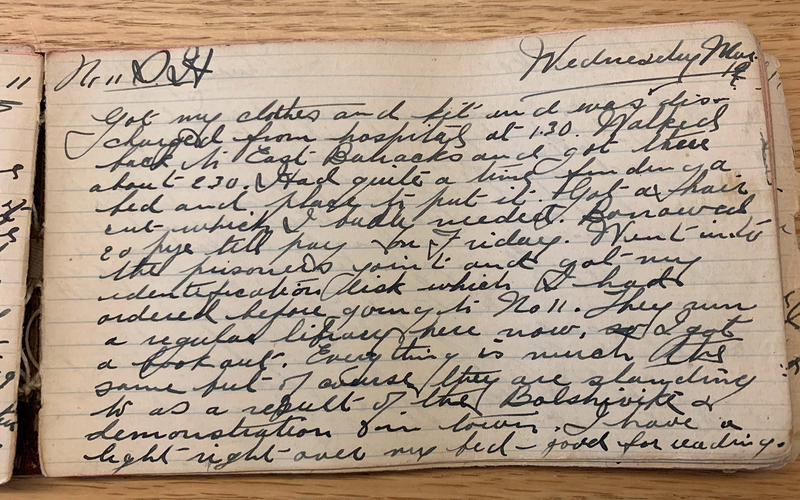 No 11 D.H
Wednesday Mar. 19.
Got my clothes and kit and was dis-
charged from hospital at 1.30. Walked
back to East Barracks and got there
about 2 30. Had quite a time finding a
bed and place to put it. Got a hair
cut which I badly needed. Borrowed
20 till pay on Friday. Went into
the prisoners joint and got my
identification disk which I had
ordered before going to No 11. They run
a regular library here now, so I got
a book out. Everything is much the
same but of course they are standing
to as a result of the Bolshivik
demonstration in town. I have a
light right over my bed - good for reading.